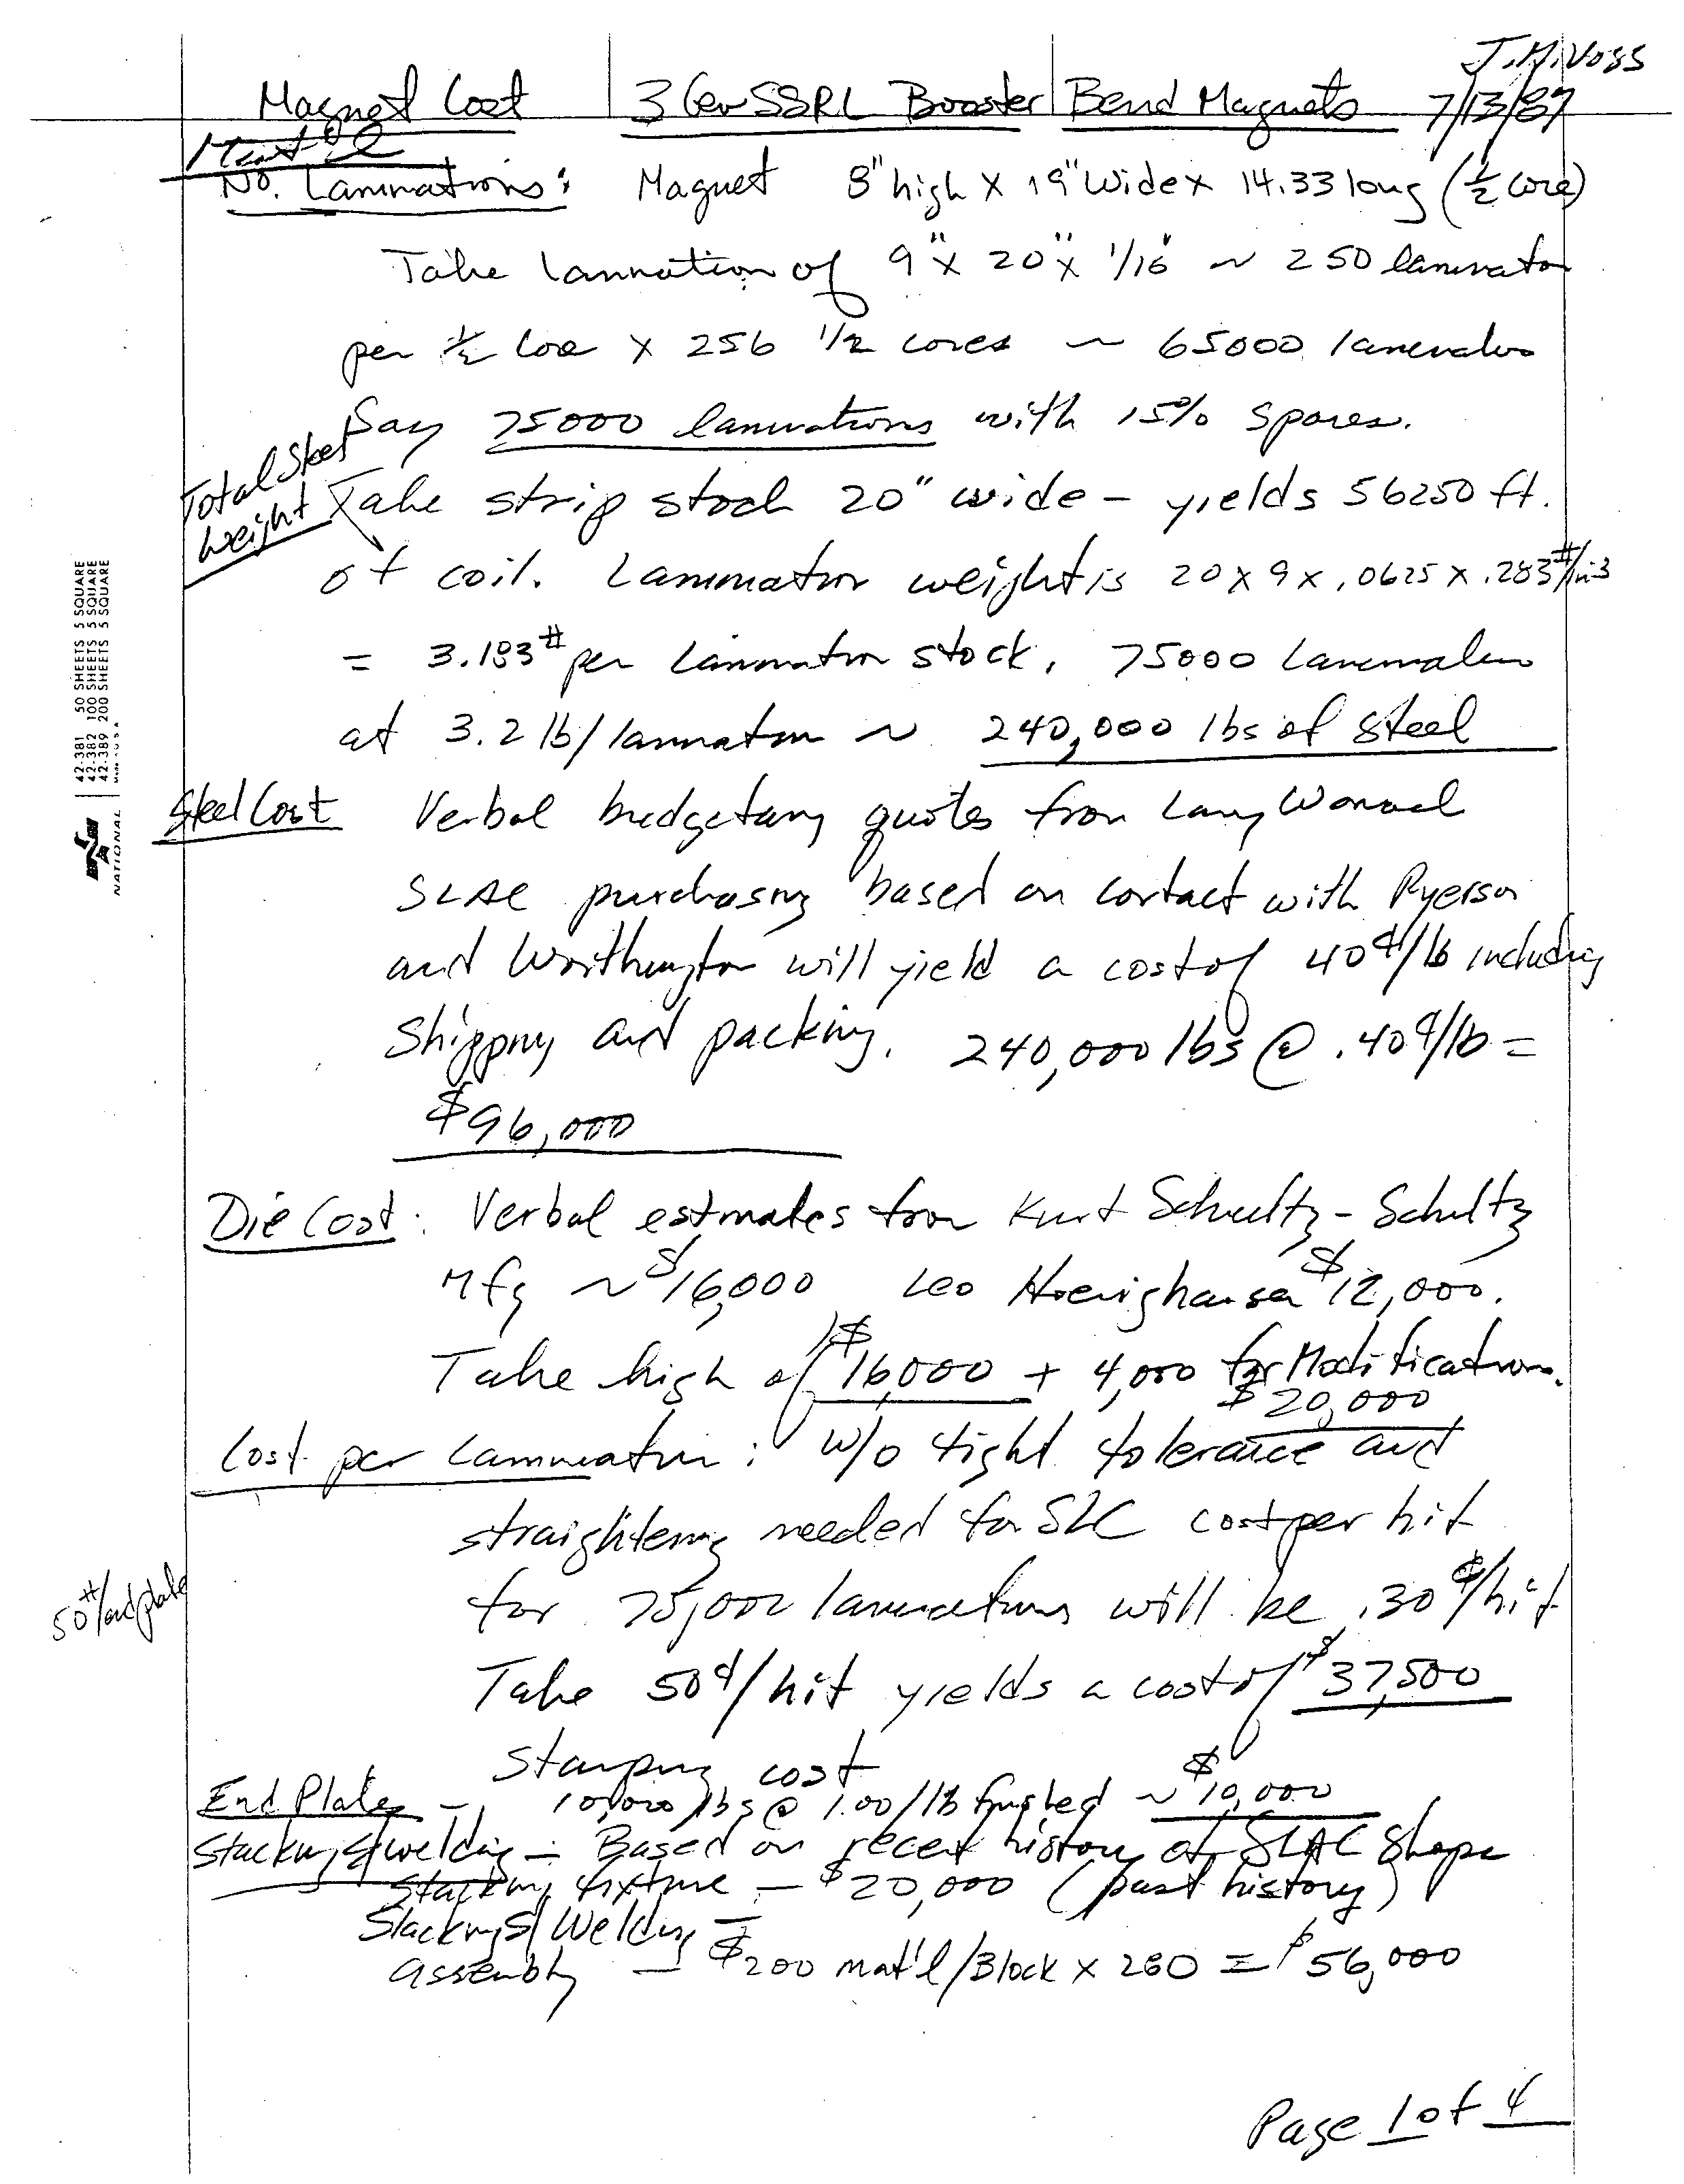 J.M. Voss
Magnet Cost 3 GeV SSRL Booster Bend Magnets 7/13/87
Mat'l
No. Laminations: Magnet 8" high X 19" wide x 14.33 long (1/2 core)
Take lamination of 9" x 20" x 1/16" ~ 250 laminations
per 1/2 core x 256 1/2 cores ~ 65000 laminations
Say 75000 laminations with 15% spares.
Total Steel
weight
Take strip stock 20" wide - yields 56250 ft.
of coil. Lamination weight is 20 x 9 x .0625 x .283#/in3
= 3.183# per lamination stock. 75000 laminations
at 3.2 lb/lamination ~ 240,000 lbs of steel
Steel Cost Verbal budgetary quotes from Larry
SLAC purchasing based on contact with Ryerson
and Worthington will yield a cost of 40¢/lb including
Shipping and packing. 240,000 lbs @ .40¢/lb =
$96,000
Die Cost: Verbal estimates from Kurt Schultz - Schultz
Mfg ~ $16,000 Leo Hoenighausen $12,000.
Take high of $16,000 + 4,000 for Modifications.
$20,000
Cost per Lamination: w/o tight tolerance and
straightening needed for SLC cost per hit
for 75,000 laminations will be .30¢/hit
50#/endplate
Take 50¢/hit yields a cost of $37,500
Stamping cost
End Plates - 10,000 lbs @ 1.00/lb finished ~ $10,000
Stacking & welding - Based on recent history at SLAC Shops
Stacking fixture - $20,000 (past history)
Stacking & Welding -
assembly - $200 mat'l/Block x 280 = $56,000
Page 1 of 4
42-381 50 SHEETS 5 SQUARE
42-382 100 SHEETS 5 SQUARE
42-389 200 SHEETS 5 SQUARE
NATIONAL